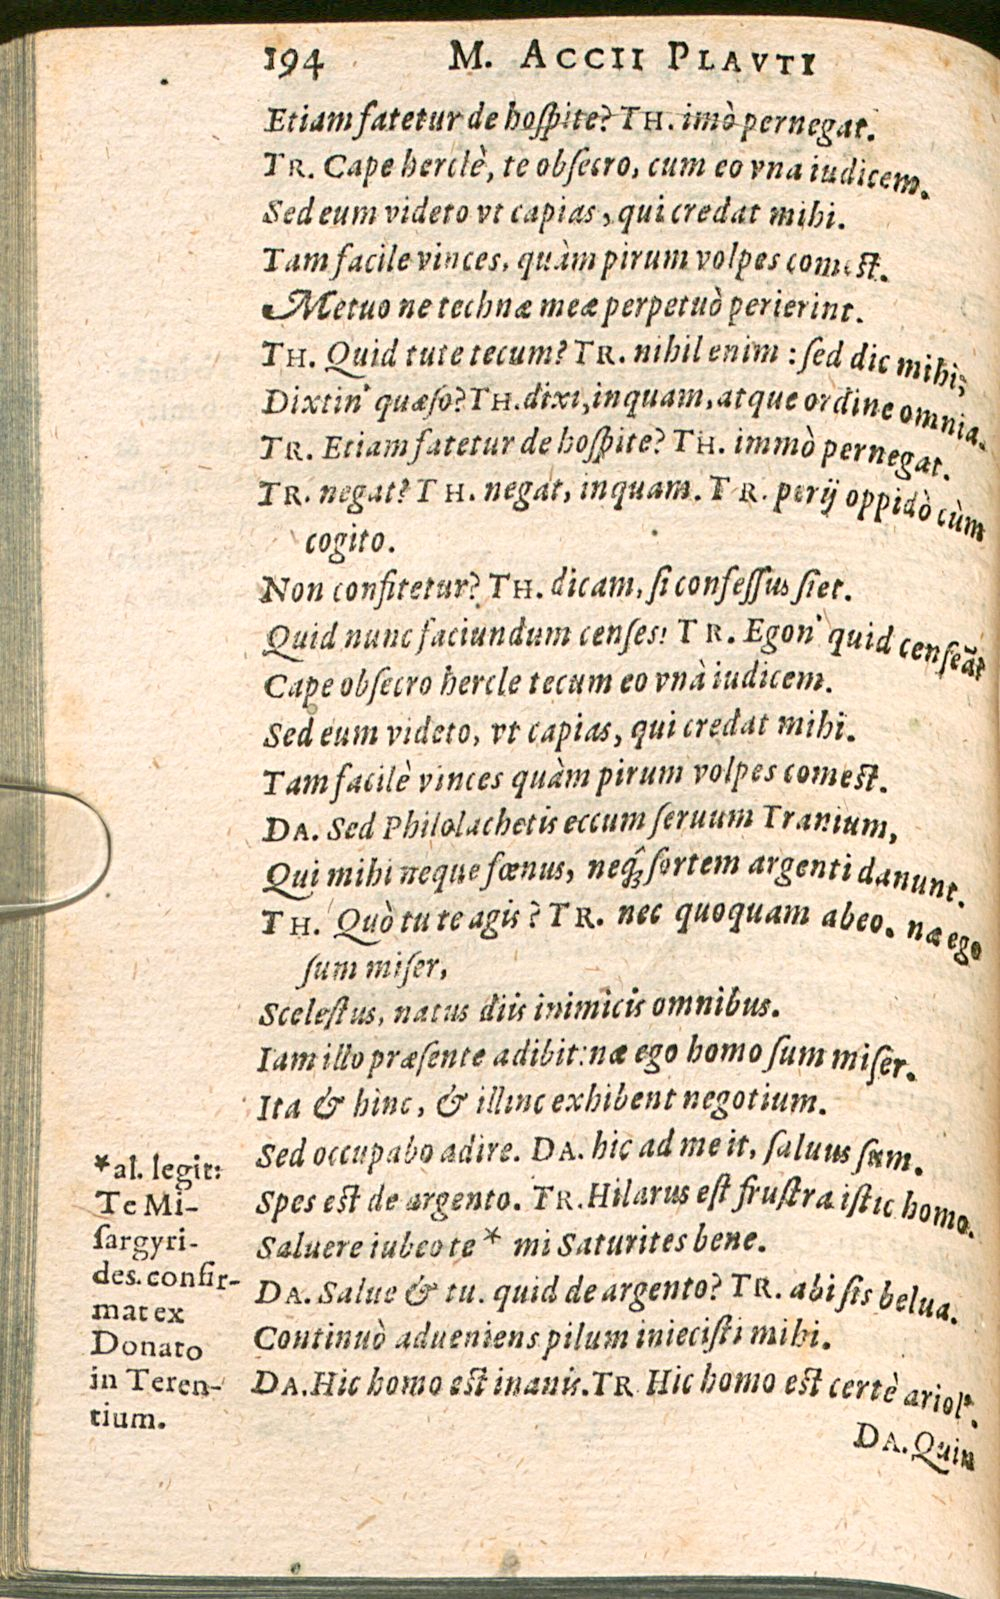 194 M. ACCII PLAVTI
Etiam fatetur de hoſpite? TH. imò pernegat.
TR. Cape herclè, te obſecro, cum eo vna iudicem.
Sed eum videto vt capias, qui credat mihi.
Tam facile vinces, quàm pirum volpes comeſt.
Metuo ne technæ meæ perpetuò perierint.
TH. Quid tute tecum? TR. nihil enim : ſed dic mihi;
Dixtin' quæſo? TH. dixi, inquam, atque ordine omnia.
TR. Etiam fatetur de hoſpite? TH. immò pernegat.
TR. negat? TH. negat, inquam. TR. perij oppidò cùm
cogito.
Non confitetur? TH. dicam, ſi confeſſus ſiet.
Quid nunc faciundum cenſes? TR. Egon' quid cenſeā?
Cape obſecro hercle tecum eo vnà iudicem.
Sed eum videto, vt capias, qui credat mihi.
Tam facilè vinces quàm pirum volpes comeſt.
DA. Sed Philolachetis eccum ſeruum Tranium,
Qui mihi neque fœnus, neq; ſortem argenti danunt.
TH. Quò tu te agis? TR. nec quoquam abeo. næ ego
ſum miſer,
Sceleſtus, natus diis inimicis omnibus.
Iam illo præſente adibit: næ ego homo ſum miſer.
Ita & hinc, & illinc exhibent negotium.
Sed occupabo adire. DA. hic ad me it, ſaluus ſum.
Spes eſt de argento. TR. Hilarus eſt fruſtra iſtic homo.
Saluere iubeo te * mi Saturites bene.
DA. Salue & tu. quid de argento? TR. abi ſis belua.
Continuò adueniens pilum inieciſti mihi.
DA. Hic homo eſt inanis. TR Hic homo eſt certè ariol⁹.
DA. Quin
*al. legit:
Te Mi-
ſargyri-
des. confir-
mat ex
Donato
in Teren-
tium.